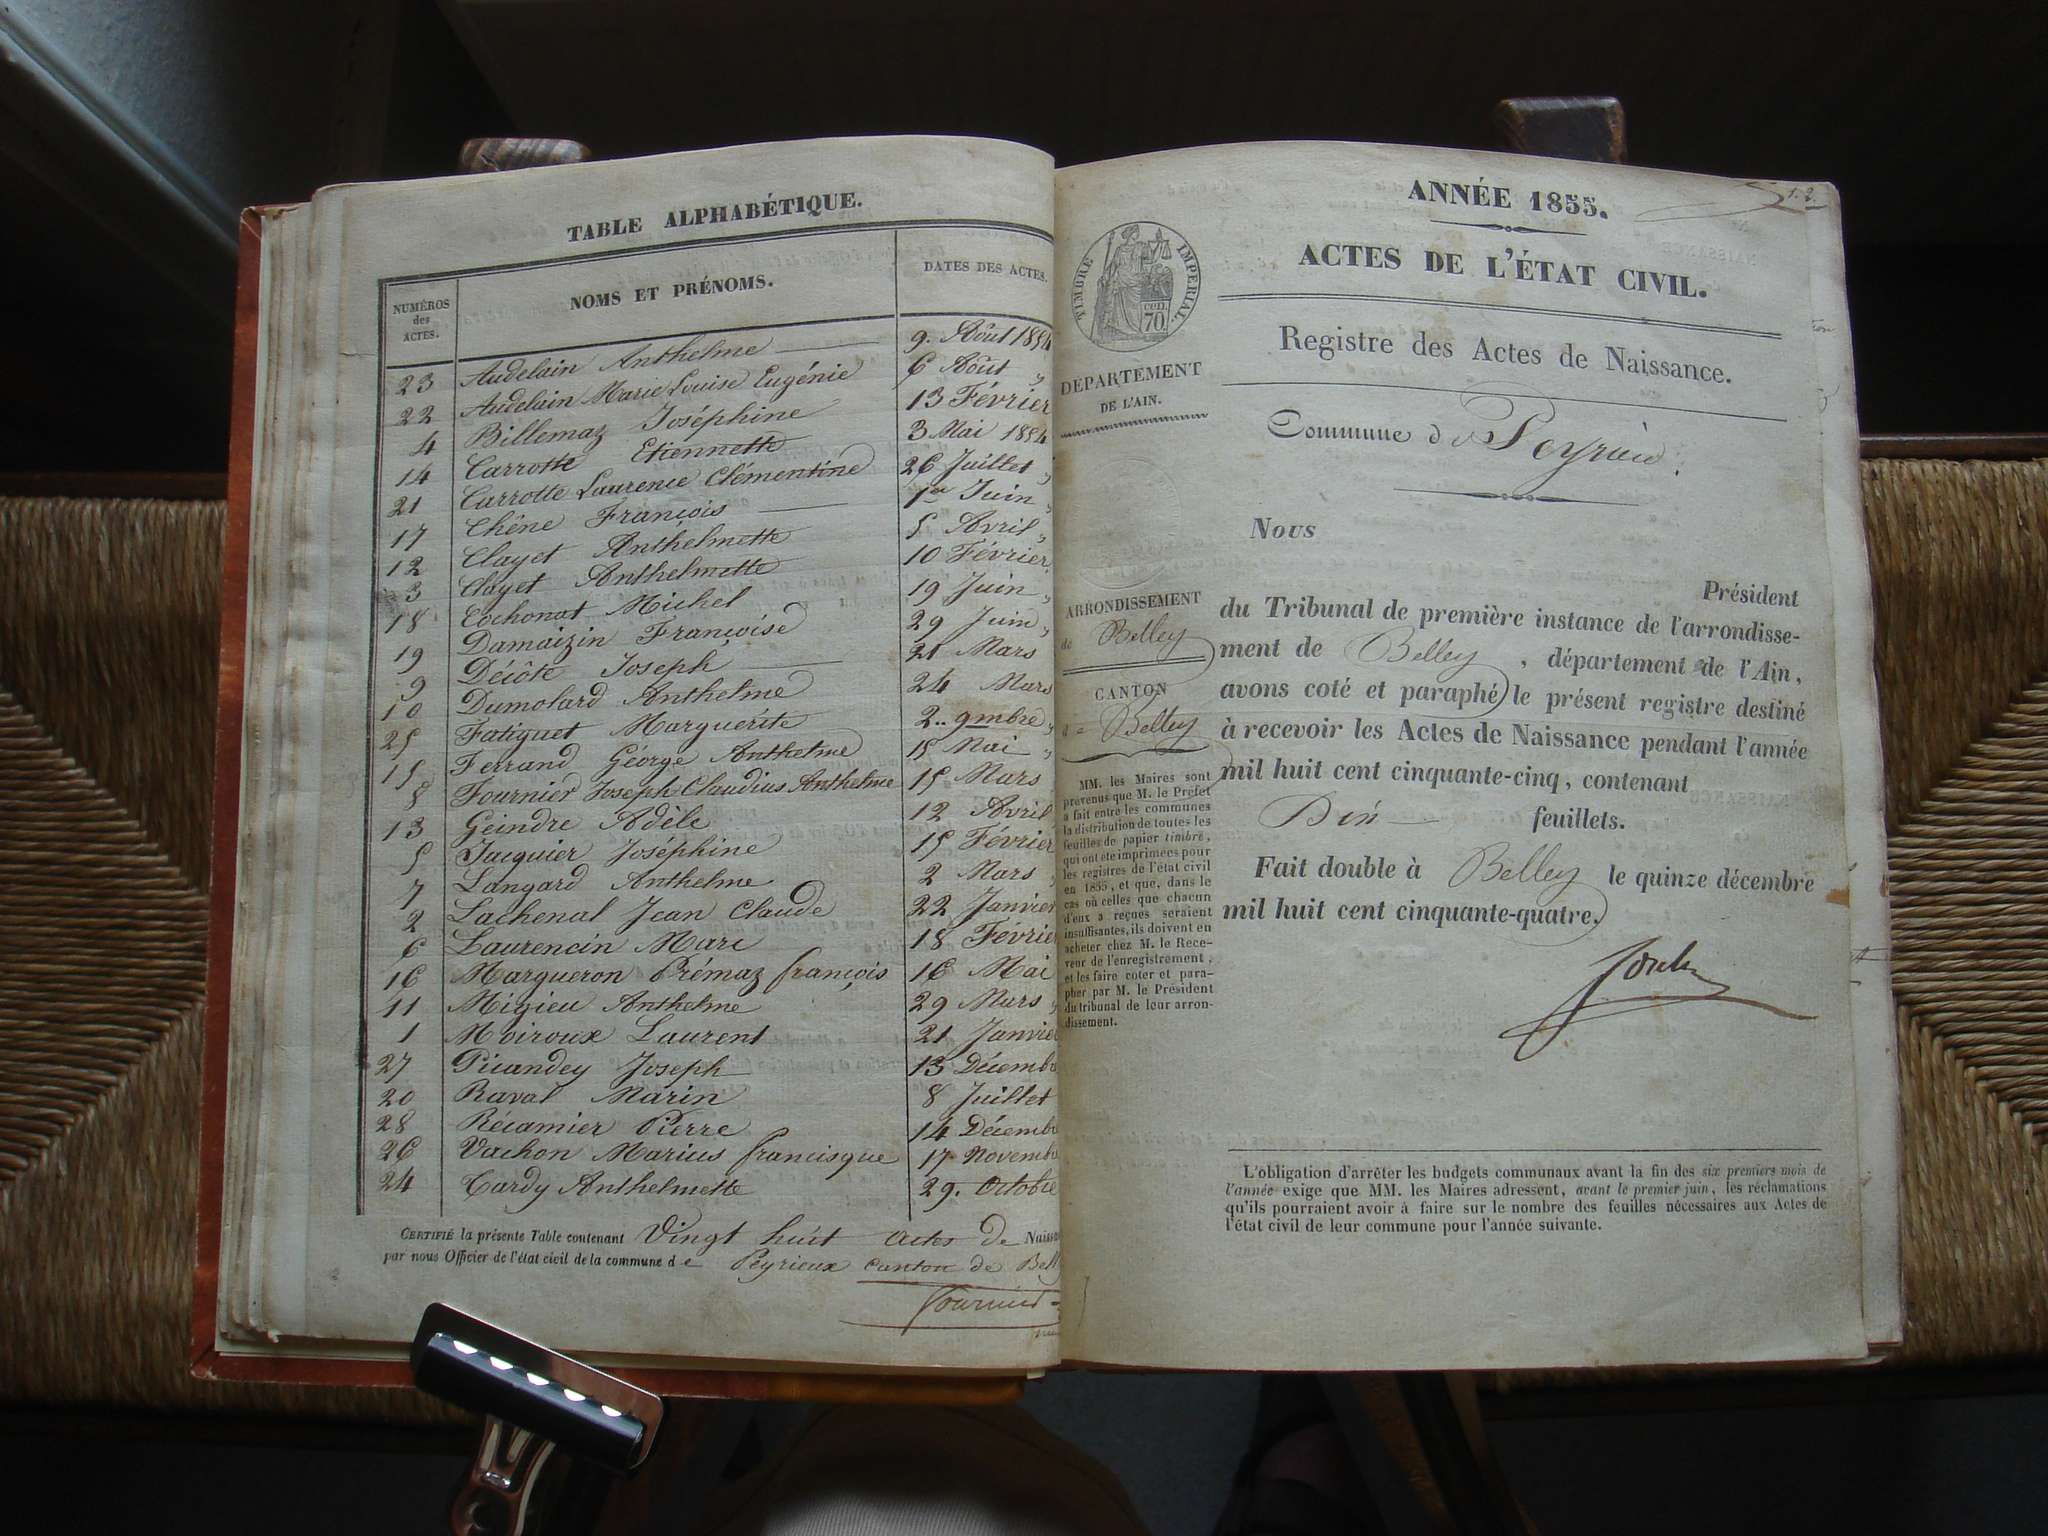 TABLE ALPHABÉTIQUE.
NUMÉROS des ACTES. NOMS ET PRÉNOMS. DATES DES ACTES.
23 Audelain Anthelme 9. Août 1854
22 Audelain Marie Louise Eugénie 6 Août "
4 Billemaz Joséphine 13 Février
14 Carrotte Etiennette 3 Mai 1854
21 Carrotte Laurence Clémentine 26 Juillet "
17 Chêne François 1er Juin "
12 Clayet Anthelmette 5 Avril "
3 Clayet Anthelmette 10 Février
18 Cochonat Michel 19 Juin "
19 Damaizin Françoise 29 Juin "
9 Décôte Joseph 21 Mars
10 Dumolard Anthelme 24 Mars
25 Fatiguet Marguerite 2.. 9mbre "
15 Ferrand George Anthelme 15 Mai "
8 Fournier Joseph Claudius Anthelme 15 Mars
13 Geindre Adèle 12 Avril
5 Jacquier Joséphine 15 Février
7 Langard Anthelme 2 Mars
2 Lachenal Jean Claude 22 Janvier
6 Laurencin Marc 18 Février
16 Margueron Prémaz françois 16 Mai
11 Migieu Anthelme 29 Mars "
1 Moiroux Laurent 21 Janvier
27 Picandey Joseph 13 Décembre
20 Raval Marin 8 Juillet
28 Récamier Pierre 14 Décembre
26 Vachon Marius francisque 17 Novembre
24 Tardy Anthelmette 29. Octobre
CERTIFIÉ la présente Table contenant Vingt huit actes de Naiss
par nous Officier de l'état civil de la commune de Peyrieux canton de Bell
Fournier
ANNÉE 1855.
ACTES DE L'ÉTAT CIVIL.
Registre des Actes de Naissance.
Commune de Peyrieu
TIMBRE IMPERIAL.
cen.
70.
DÉPARTEMENT
DE L'AIN.
ARRONDISSEMENT
de Belley
CANTON
de Belley
MM. les Maires sont
prévenus que M. le Préfet
a fait entre les communes
la distribution de toutes les
feuilles de papier timbré,
qui ont été imprimées pour
les registres de l'état civil
en 1855, et que, dans le
cas où celles que chacun
d'eux a reçues seraient
insuffisantes, ils doivent en
acheter chez M. le Rece-
veur de l'enregistrement,
et les faire coter et para-
pher par M. le Président
du tribunal de leur arron-
dissement.
Nous
Président
du Tribunal de première instance de l'arrondisse-
ment de Belley, département de l'Ain,
avons coté et paraphé le présent registre destiné
à recevoir les Actes de Naissance pendant l'année
mil huit cent cinquante-cinq, contenant
Dix feuillets.
Fait double à Belley le quinze décembre
mil huit cent cinquante-quatre.
L'obligation d'arrêter les budgets communaux avant la fin des six premiers mois de
l'année exige que MM. les Maires adressent, avant le premier juin, les réclamations
qu'ils pourraient avoir à faire sur le nombre des feuilles nécessaires aux Actes de
l'état civil de leur commune pour l'année suivante.